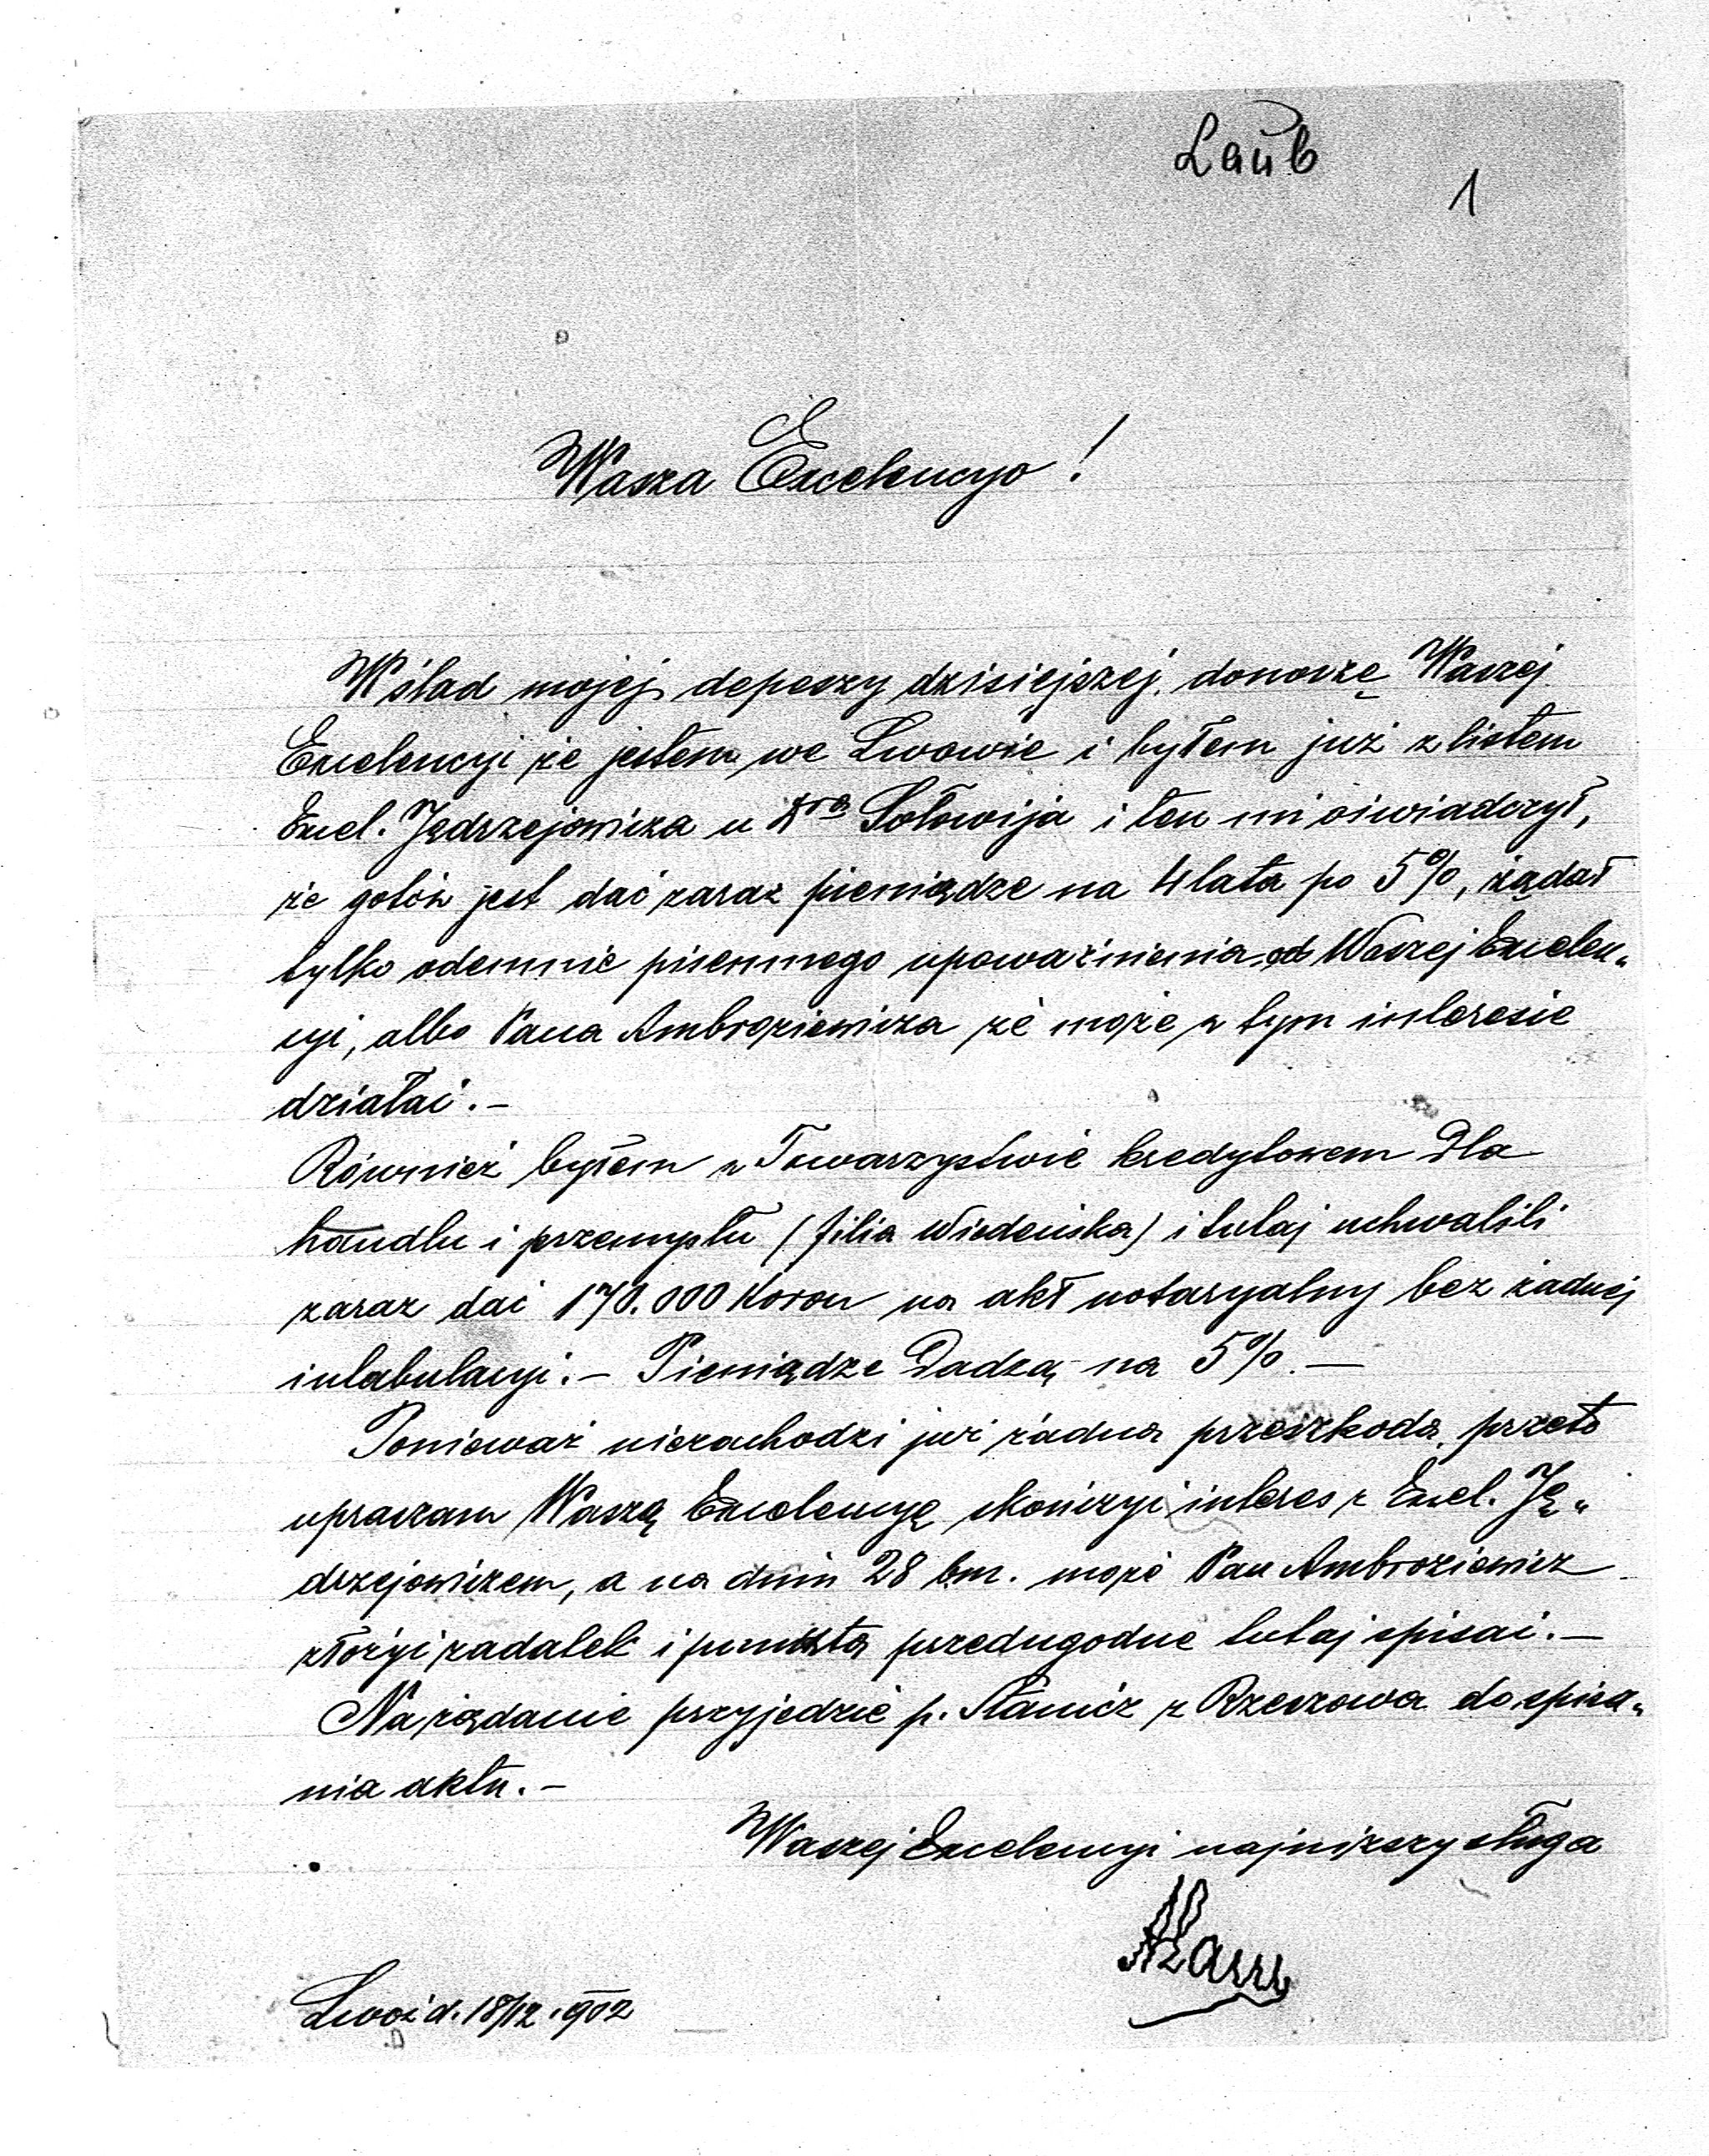 Laub
1
Wasza Excelencyo!
W ślad mojej depeszy dzisiejszej, donoszę Waszej
Excelencyi że jestem we Lwowie i byłem już z listem
Excel. Jędrzejowicza u Dra Sołowija i ten mi oświadczył,
że gotów jest dać zaraz pieniądze na 4 lata po 5%, żądał
tylko odemnie pisemnego upoważnienia od Waszej Excelen„
cyi, albo Pana Ambroziewicza że może w tym interesie
działać. -
Również byłem w Towarzystwie kredytowem dla
handlu i przemysłu (filia Wiedeńska) i tutaj uchwalili
zaraz dać 170.000 Koron na akt notaryalny bez żadnej
intabulacyi. - Pieniądze Dadzą na 5%. -
Ponieważ niezachodzi już żadna przeszkoda, przeto
upraszam Waszą Excelencyę skończyć interes z Excel. Ję„
drzejowiczem, a na dniu 28 bm. może Pan Ambroziewicz
złożyć zadatek i punkta przedugodne tutaj spisać. -
Na żądanie przyjedzie p. z Rzeszowa do spisa„
nia aktu. -
Waszej Excelencyi najniższy sługa
Lwów d. 18/12 1902